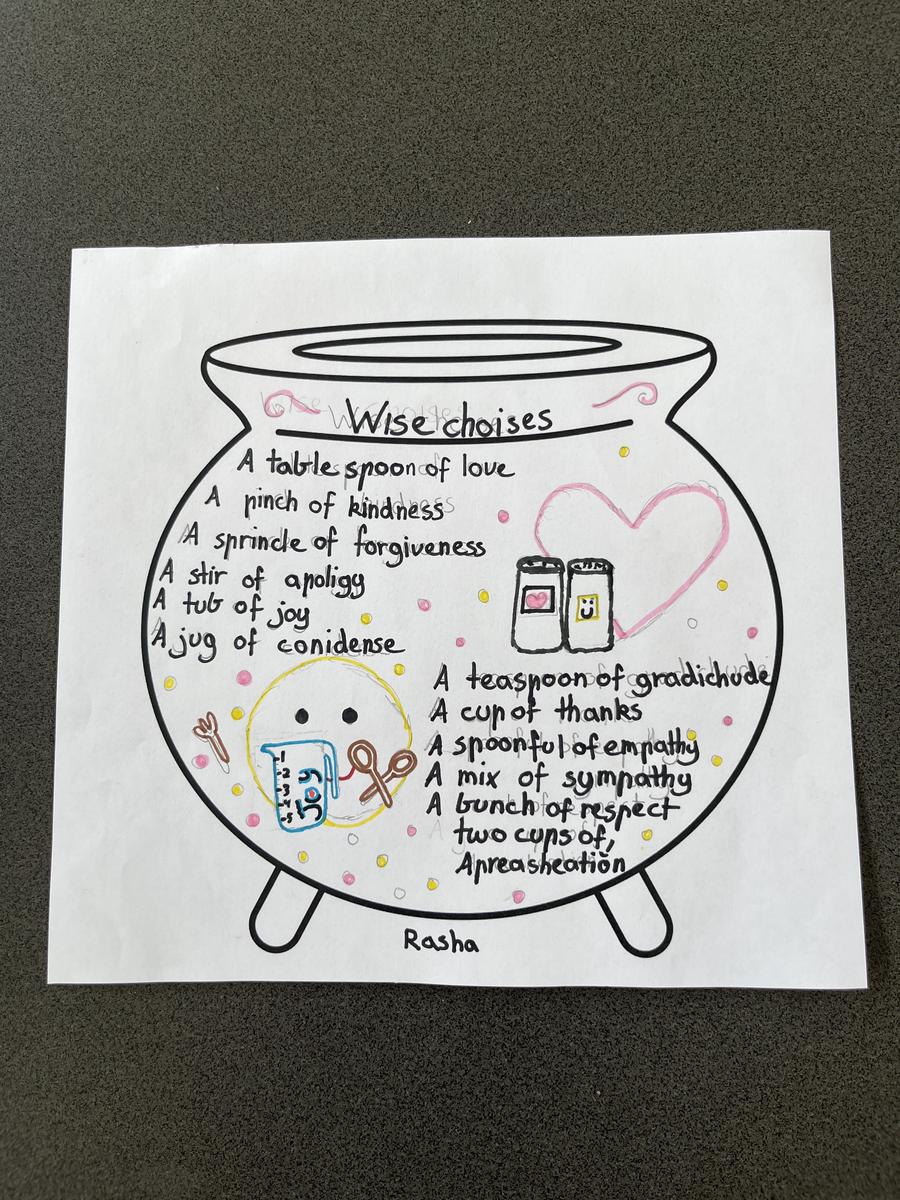 Wise choises
A table spoon of love
A pinch of kindness
A sprincle of forgiveness
A stir of apoligy
A tub of joy
A jug of conidense
A teaspoon of gradichude
A cup of thanks
A spoonful of empathy
A mix of sympathy
A bunch of respect
two cups of,
Apreasheation
-1
-2
-3
-4
-5
Joy
Rasha